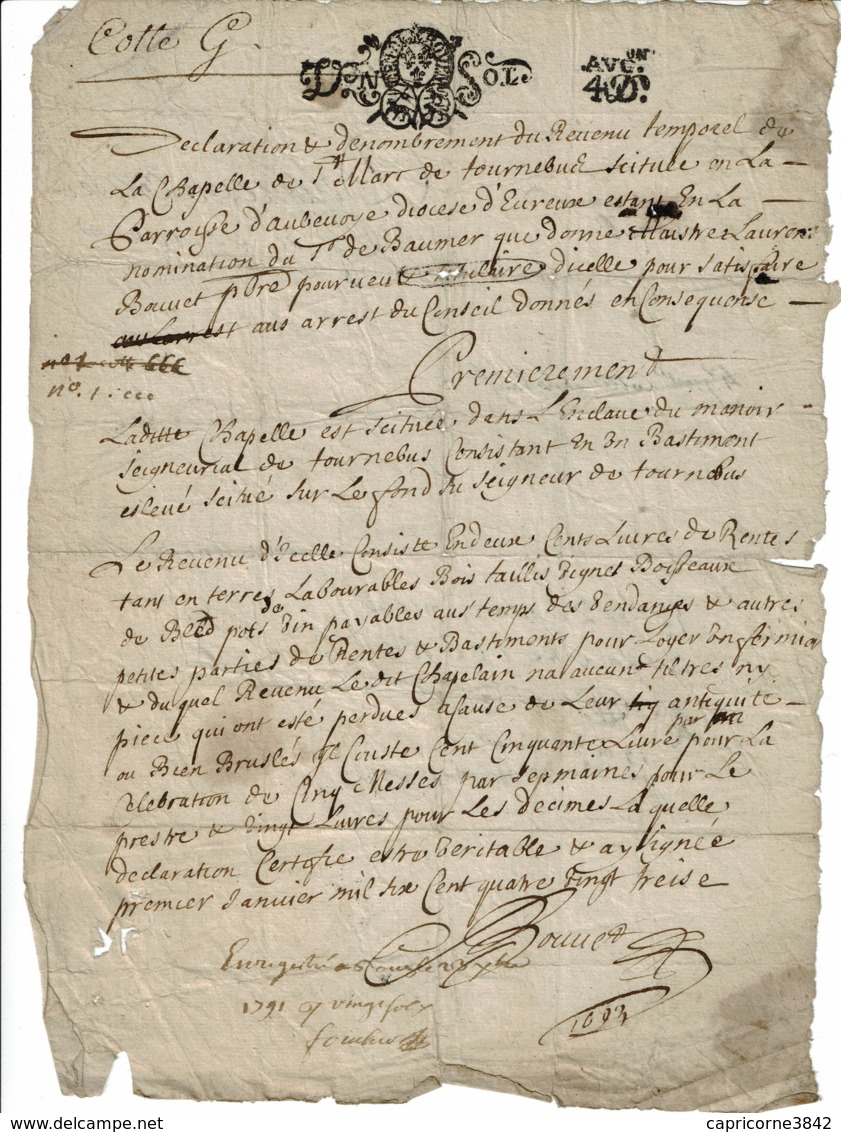 Cotte G.
D N SOL
AVG.ON
4 D.
Declaration & denombrement du Revenu temporel de
La Chapelle de St Marc de tournebud scituée en La
Parroisse d'aubevoye diocese d'Evreux estant En La
nomination du Sr de Baumer que donne Maistre Lauren
Bouvet pbre pourveu & titulaire dicelle pour satisfaire
aus arrest du Conseil donnés en Consequense
no. 1
Premierement
Laditte Chapelle est scituée dans L'Enclave du manoir
seigneurial de tournebus Consistant En Un Bastiment
eslevé scitué sur Le fond du seigneur de tournebus
Le Revenu d'Icelle Consiste En deux Cents Livres de Rentes
tant en terres Labourables Bois taillis Vignes Boisseaux
de Bled pots de Vin payables aus temps des Vendanges & autres
petites parties de Rentes & Bastiments pour Loyer
& duquel Revenu Le dit Chapelain na aucune tiltres ny
piece qui ont esté perdues a cause de Leur antiquité
ou Bien Bruslés Il Couste Cent Cinquante Livre par an pour La
Celebration de Cinq Messes par Sepmaines pour Le
prestre & Vingt Livres pour Les decimes La quelle
declaration Certifie estre Veritable & ay signée
premier Janvier mil six Cent quatre Vingt treise
Bouvet
Enregistré
1791 vingt sols
1693
www.delcampe.net
capricorne3842